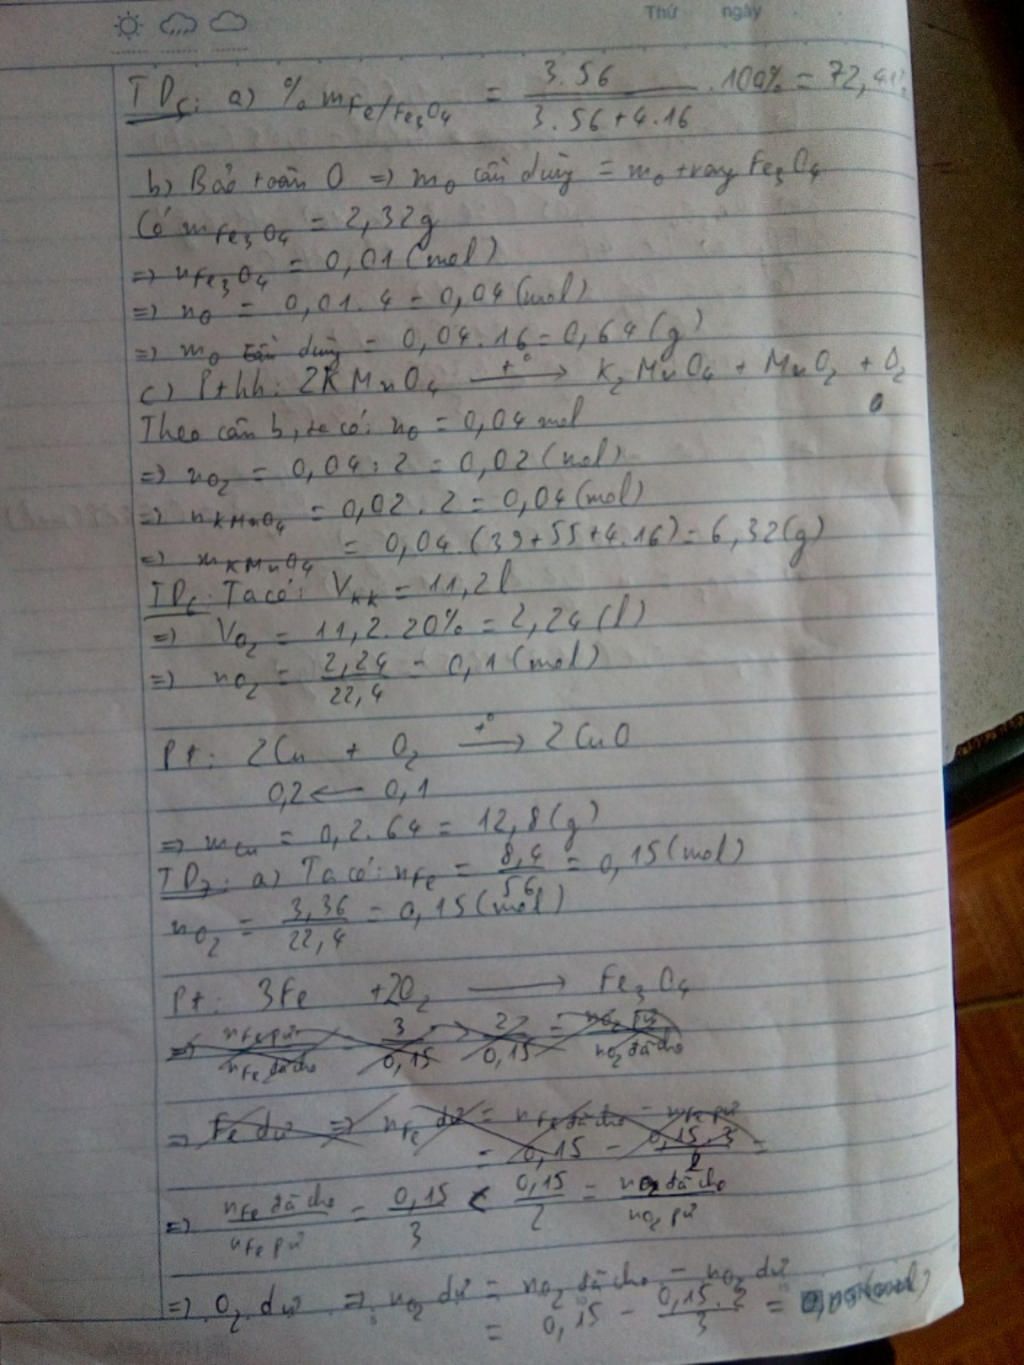 Thứ ngày
TD5: a) % mFe/Fe3O4 = 3.56 / 3.56+4.16 .100% = 72,41%
b) Bảo toàn O => mO cần dùng = mO trong Fe3O4
Có mFe3O4 = 2,32g
=> nFe3O4 = 0,01 (mol)
=> nO = 0,01.4 = 0,04 (mol)
=> mO cần dùng = 0,04.16 = 0,64 (g)
c) Pthh: 2KMnO4 t° → K2MnO4 + MnO2 + O2
Theo câu b, ta có: nO = 0,04 mol
=> nO2 = 0,04:2 = 0,02 (mol)
=> nKMnO4 = 0,02.2 = 0,04 (mol)
=> mKMnO4 = 0,04.(39+55+4.16) = 6,32 (g)
TD6: Ta có: Vkk = 11,2l
=> VO2 = 11,2.20% = 2,24 (l)
=> nO2 = 2,24 / 22,4 = 0,1 (mol)
Pt: 2Cu + O2 t° → 2CuO
0,2 ← 0,1
=> mCu = 0,2.64 = 12,8 (g)
TD7: a) Ta có: nFe = 8,4 / 56 = 0,15 (mol)
nO2 = 3,36 / 22,4 = 0,15 (mol)
Pt: 3Fe + 2O2 → Fe3O4
=> nFe pư / nFe đã cho = 3 / 0,15 > 2 / 0,15 = nO2 pư / nO2 đã cho
=> Fe dư => nFe dư = nFe đã cho - nFe pư
= 0,15 - 0,15.3 / 2 =
=> nFe đã cho / nFe pư = 0,15 / 3 < 0,15 / 2 = nO2 đã cho / nO2 pư
=> O2 dư => nO2 dư = nO2 đã cho - nO2 dư
= 0,15 - 0,15.2 / 3 = (mol)